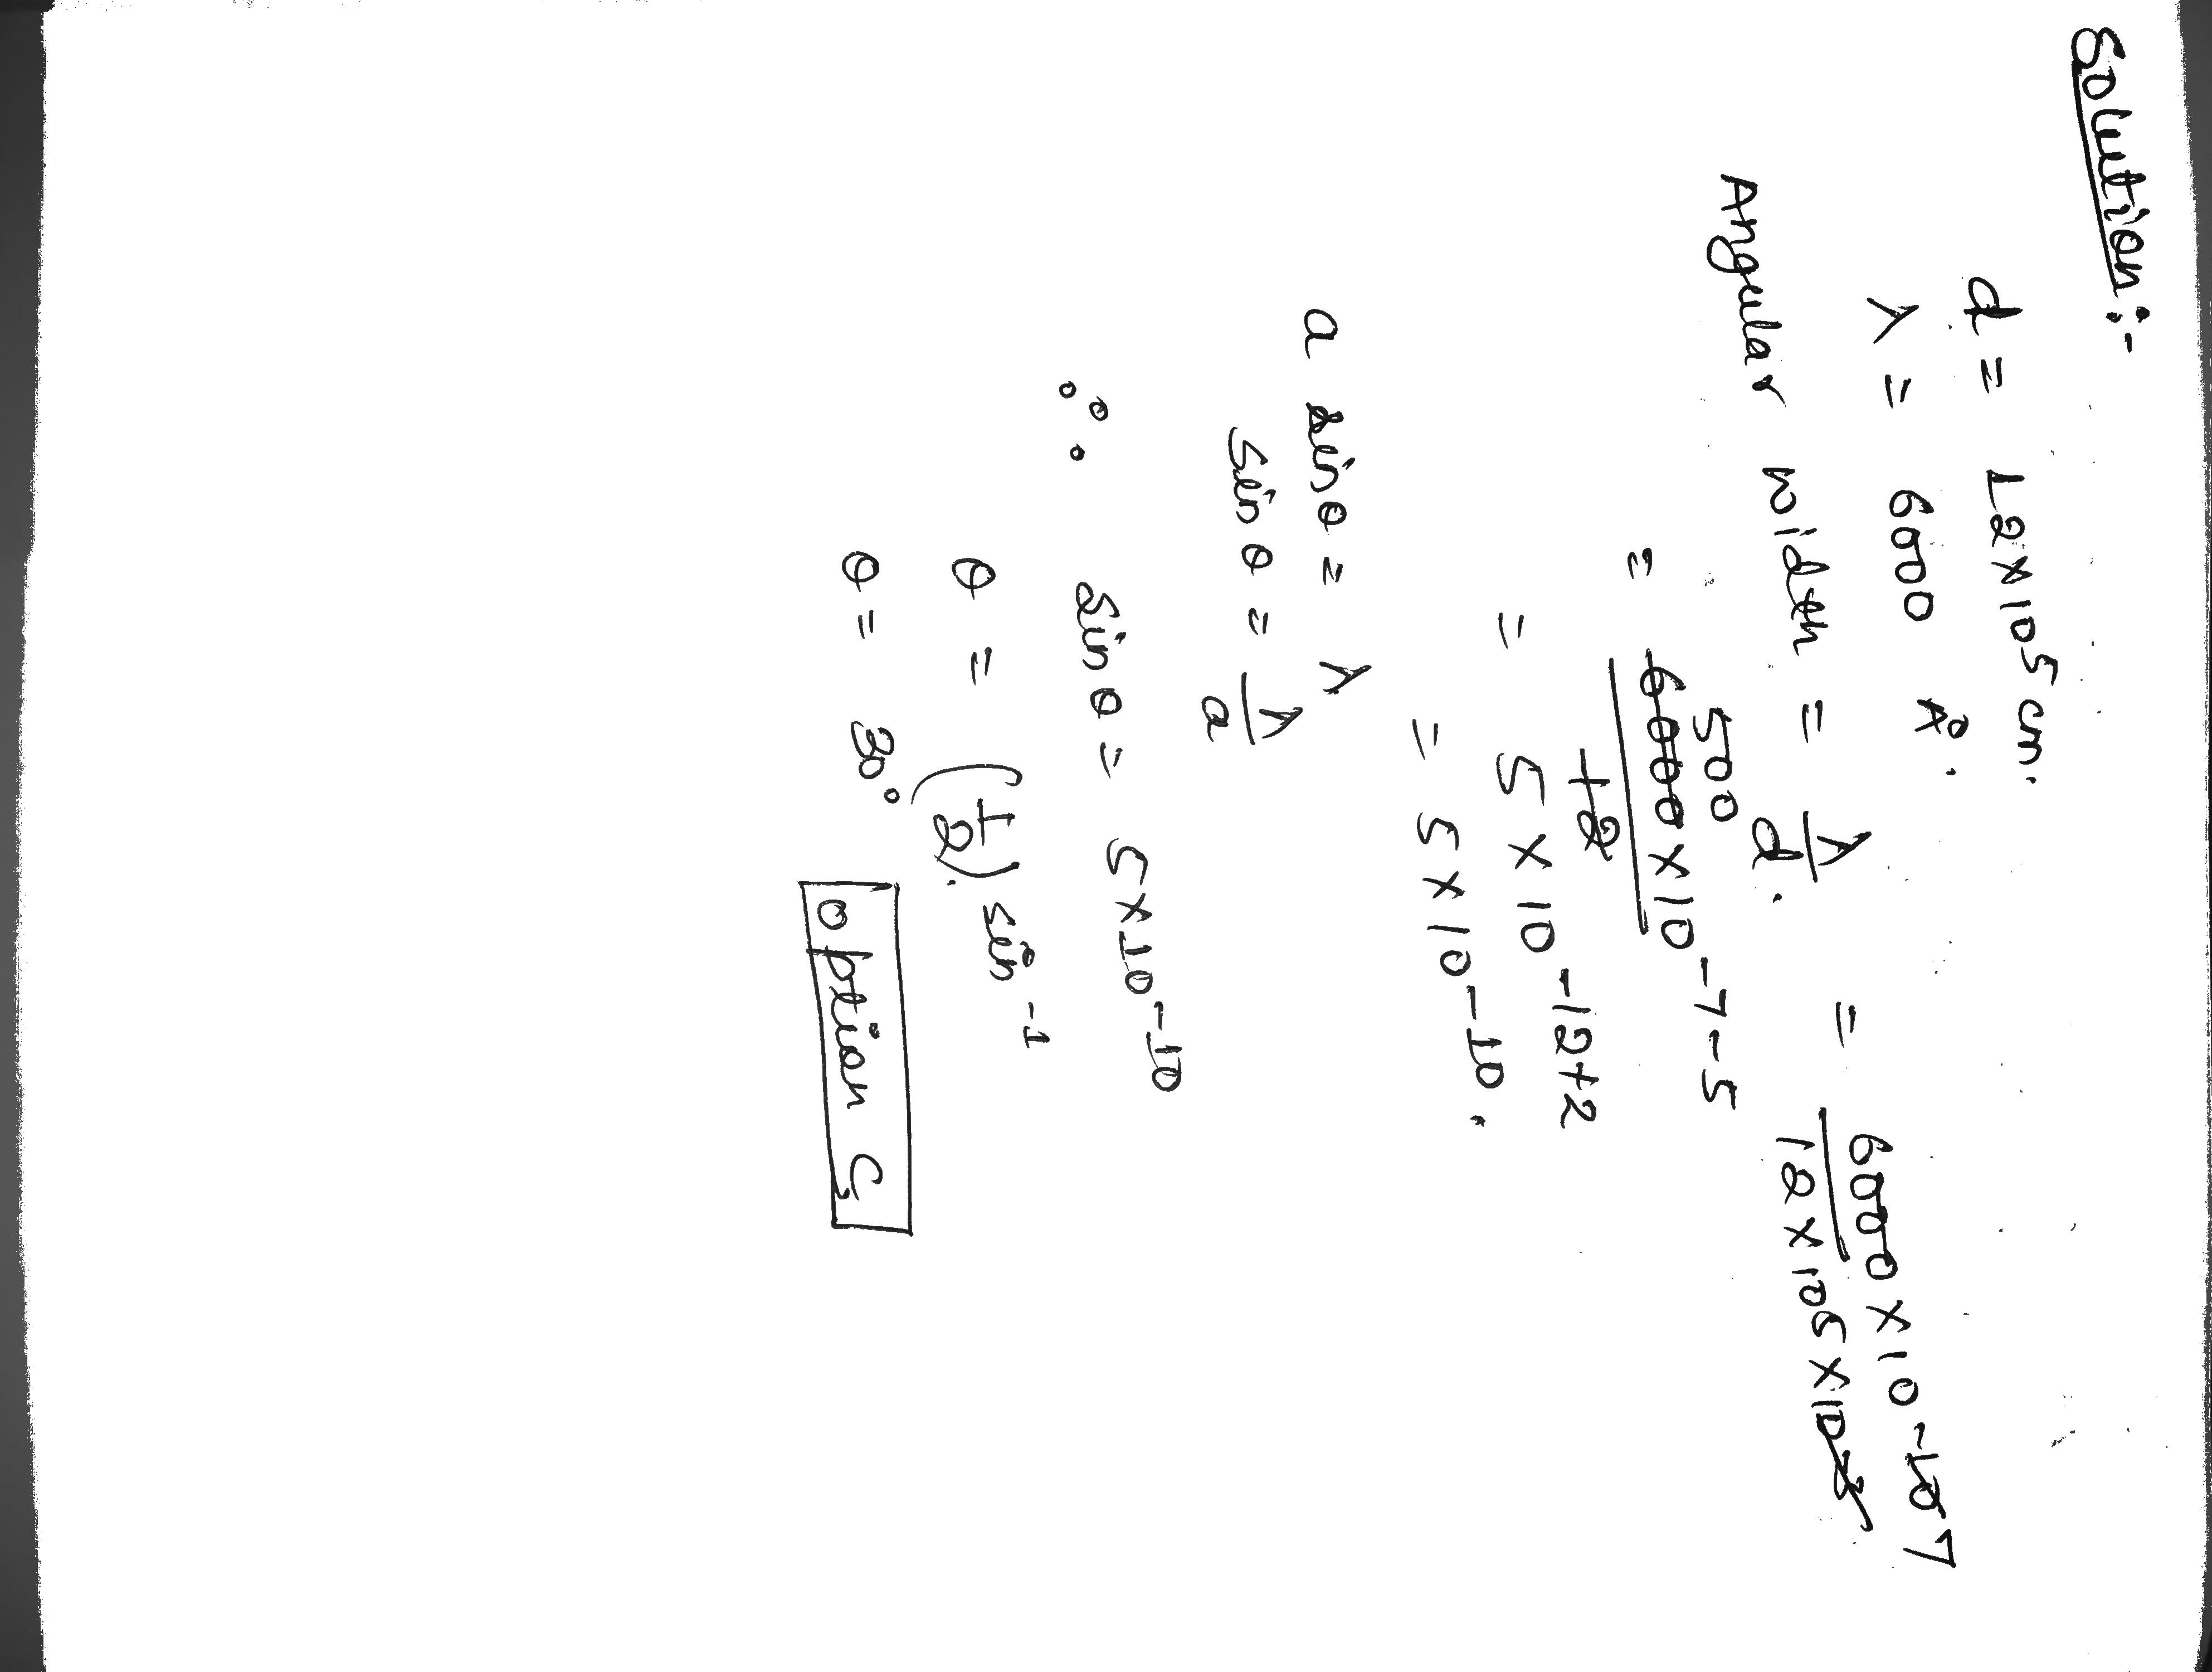 Solution :-
d = 12 × 10⁵ cm.
λ = 6000 Å.
Angular width = λ/d. = 6000 × 10⁻¹⁰ ⁷ / 12 × 10⁵ × 10⁻³
= 500 6000 × 10⁻⁷⁻⁵ / 12
= 5 × 10⁻¹²⁺²
= 5 × 10⁻¹⁰.
a sin θ = λ
sin θ = λ/a
∴ sin θ = 5 × 10⁻¹⁰
θ = (1/2). sin⁻¹
θ = 30°
Option C,